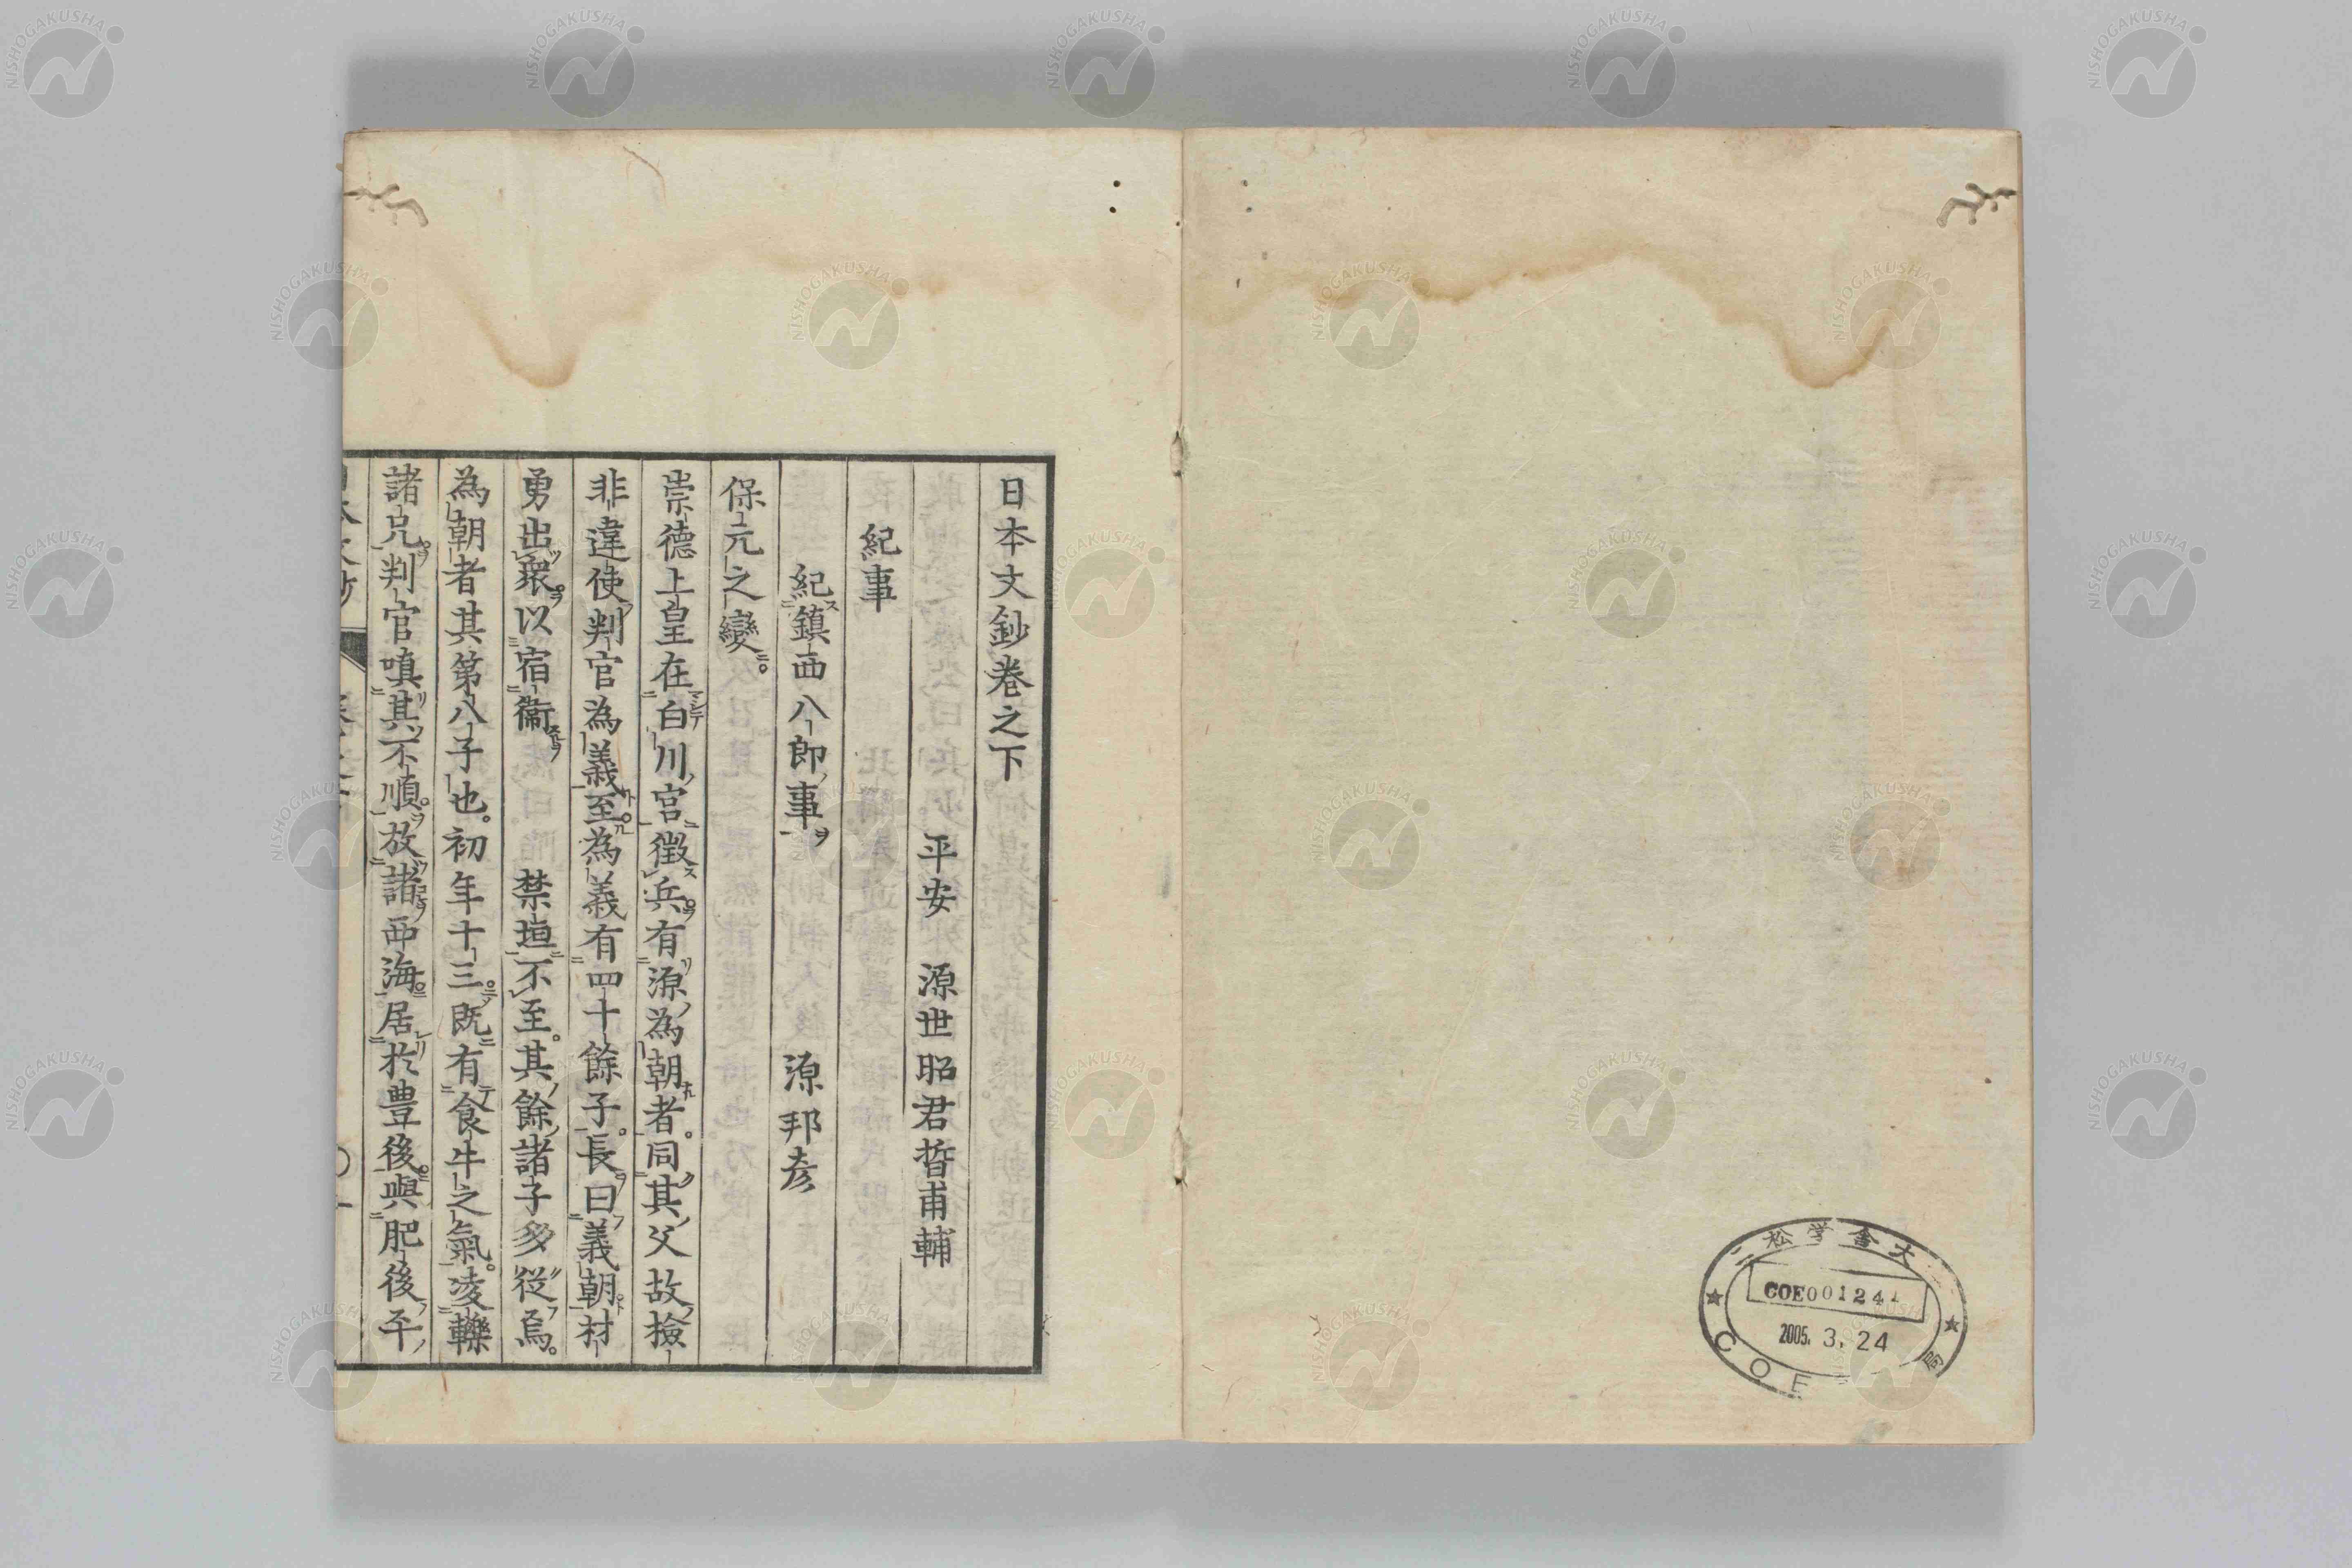 日本文鈔卷之下
平安 源世昭君晢甫輯
紀事
紀鎮西八郎事 源邦彦
保元之變。
崇德上皇在白川宮徵兵有源為朝者。同其父故撿
非違使判官為義至。為義有四十餘子。長曰義朝材
勇出衆。以宿衞 禁垣不至。其餘諸子多從焉。
為朝者其第八子也。初年十三。既有食牛之氣。凌轢
諸兄。判官嗔其不順。放諸西海。居於豊後。與肥後平
二松学舎大
COE001241
2005. 3. 24
COE
局
NISHOGAKUSHA